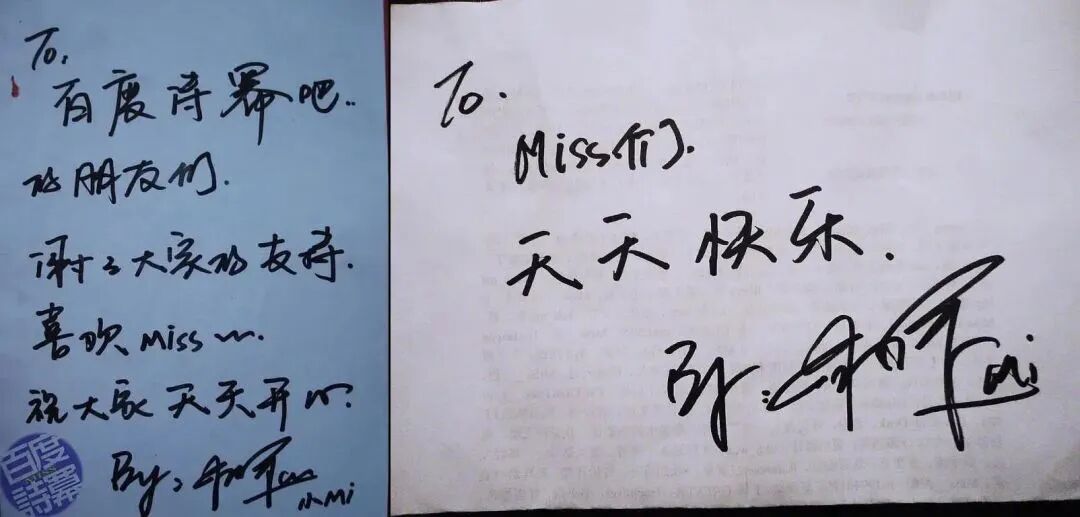 To.
百度诗幂吧..
的朋友们.
谢々大家的支持.
喜欢Miss~.
祝大家天天开心.
By:
小Mi
百度
To.
Miss们.
天天快乐.
By:
Mi